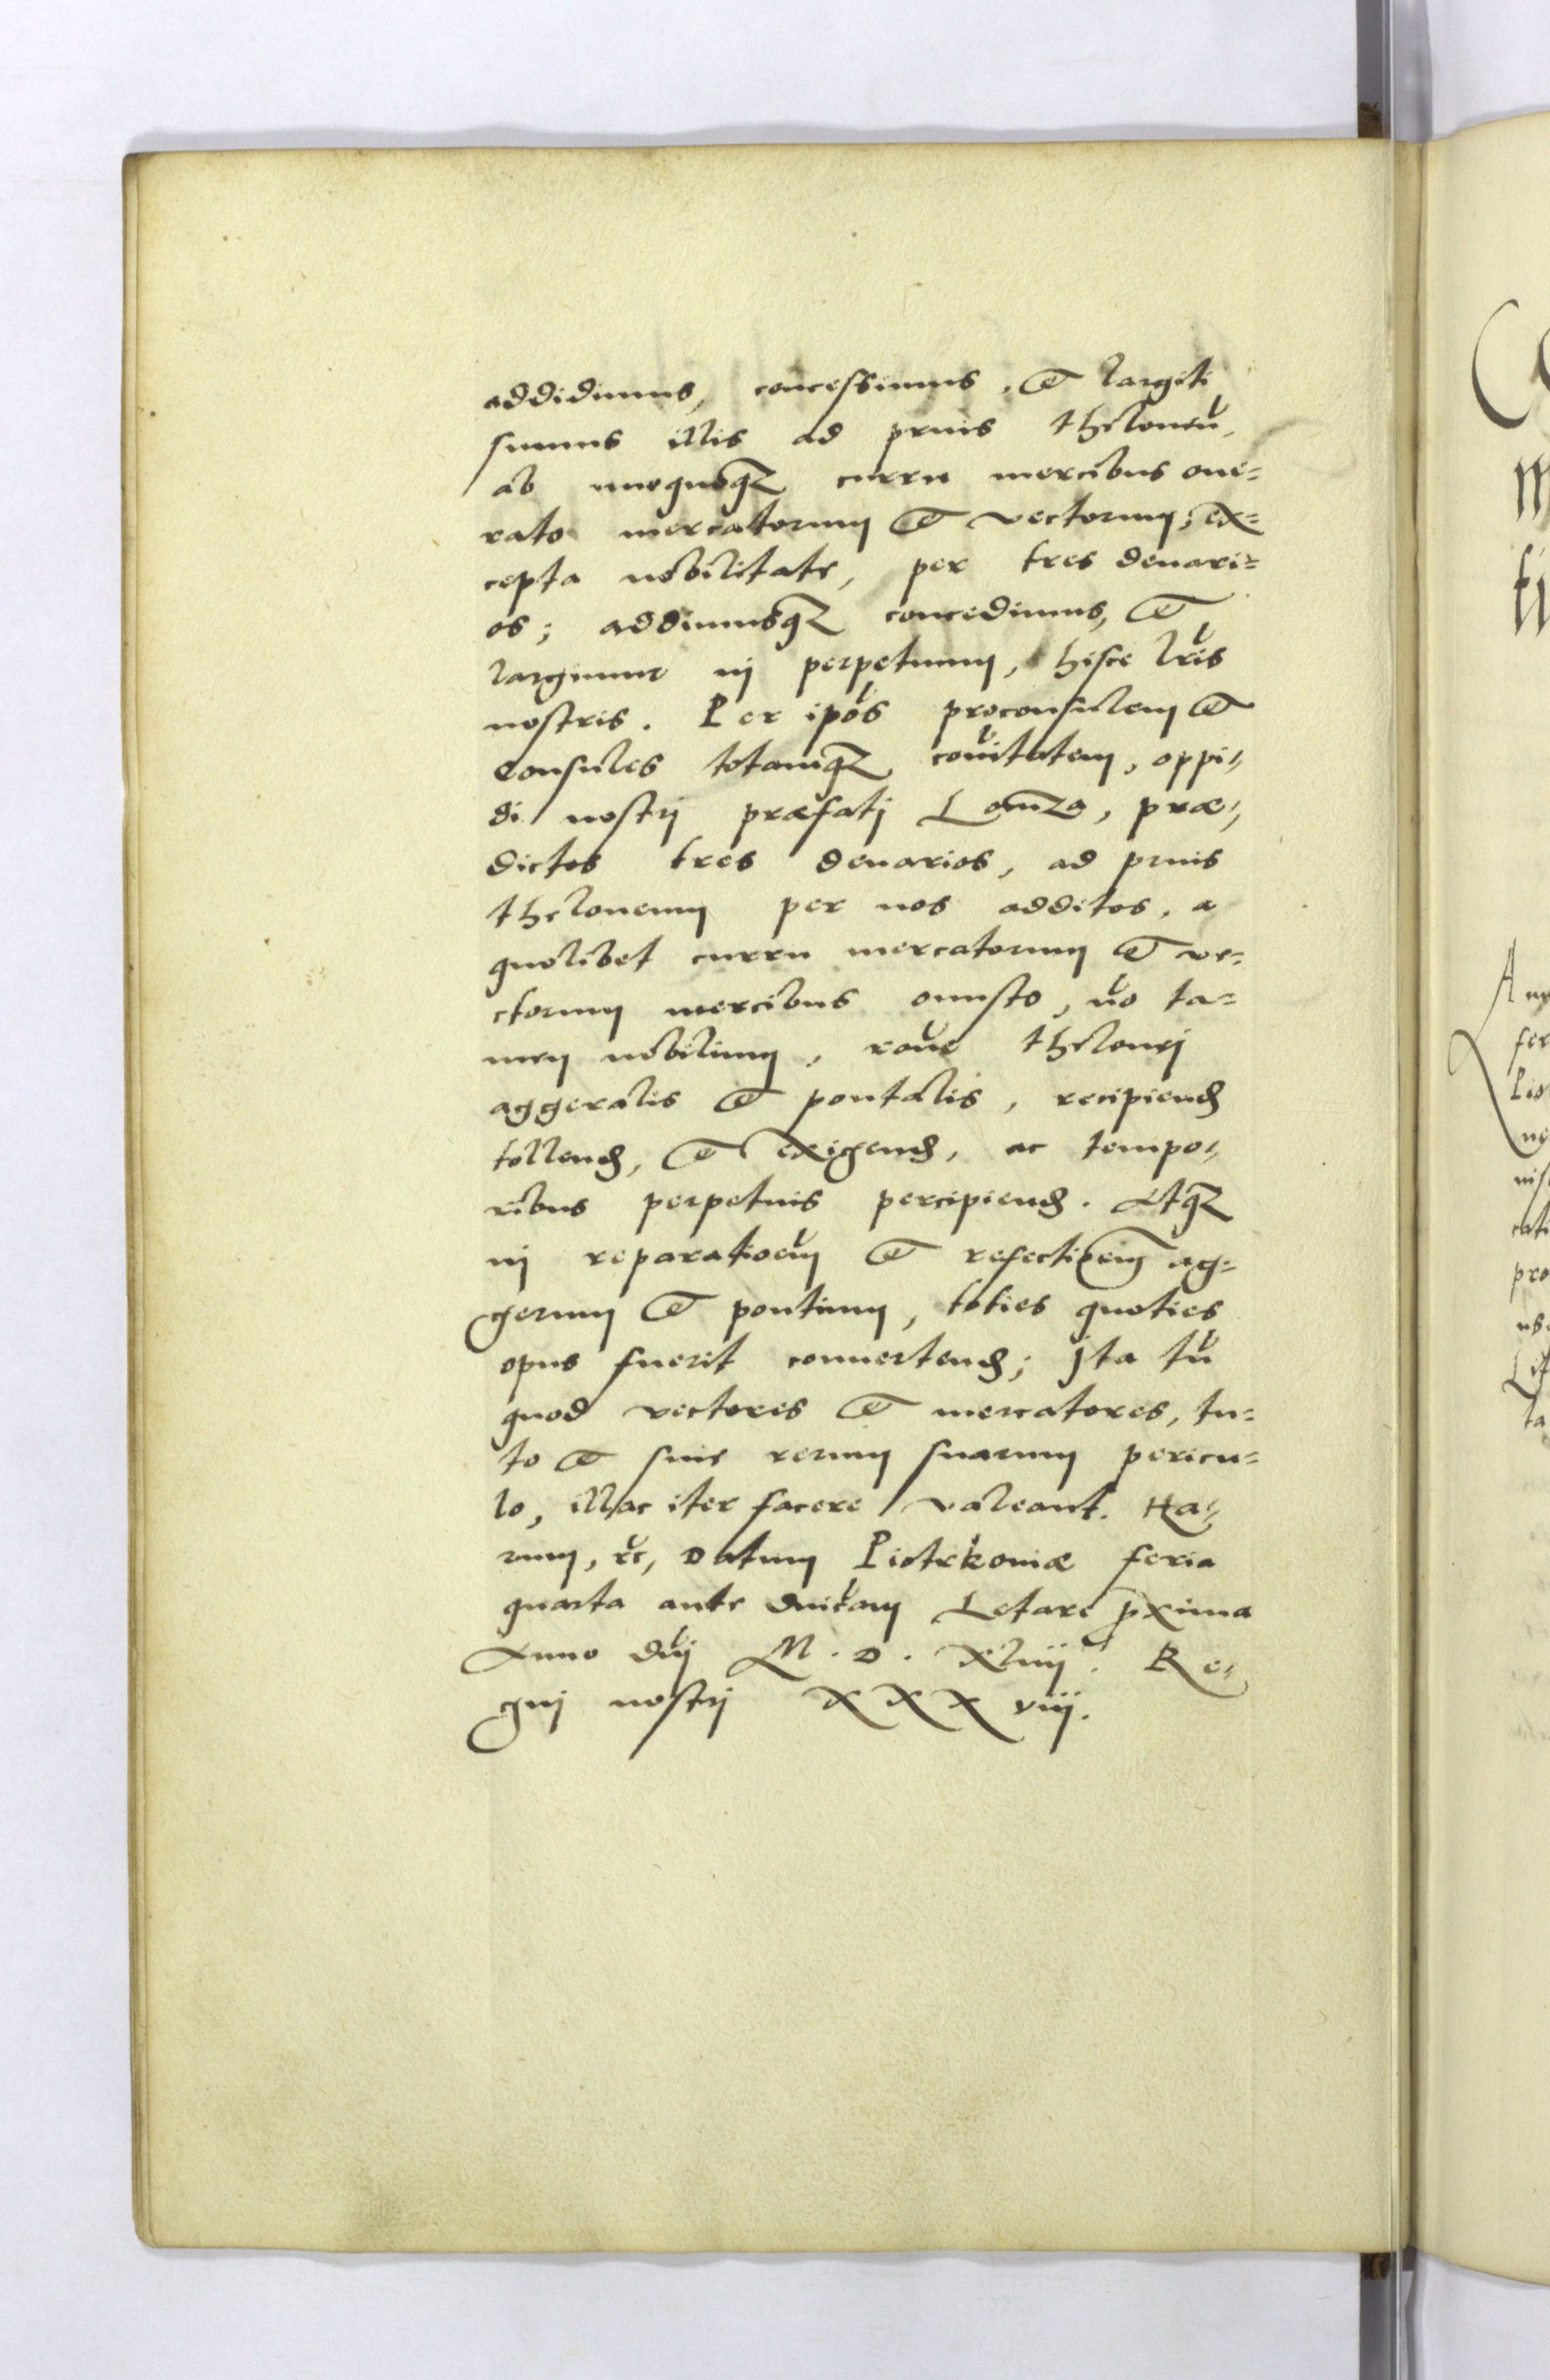 addidimus, concessimus, et largiti
sumus illis ad prius theloneũ,
ab unoquoqz curru mercibus one=
rato mercatorum et vectorum, ex=
cepta nobilitate, per tres denari=
os; addimusqz concedimus, et
largimur in perpetuum, hisce lr̃is
nostris. Per ip̃os proconsulem et
consules totamqz com̃itatem, oppi=
di nostri præfati Lomza, præ=
dictos tres denarios, ad prius
theloneum per nos additos, a
quolibet curru mercatorum et ve=
ctorum mercibus onusto, nõ ta=
men nobilium, rõne thelonei
aggeralis et pontalis, recipiend
tollend, et exigend, ac tempo=
ribus perpetuis percipiend. Atqz
in reparatioẽm et refectioẽm ag=
gerum et pontium, toties quoties
opus fuerit conuertend; Ita tñ
quod vectores et mercatores, tu=
to et sine rerum suarum pericu=
lo, illac iter facere valeant. Ha=
rum, &c, Datum Piotrkouiæ feria
quarta ante Dnĩcam Letare pxima
Anno Dñi M.D.Xliiij. Re=
gni nostri XXX viij.
A
fer
Pio
ut
cati
pro
us
Lit
ta